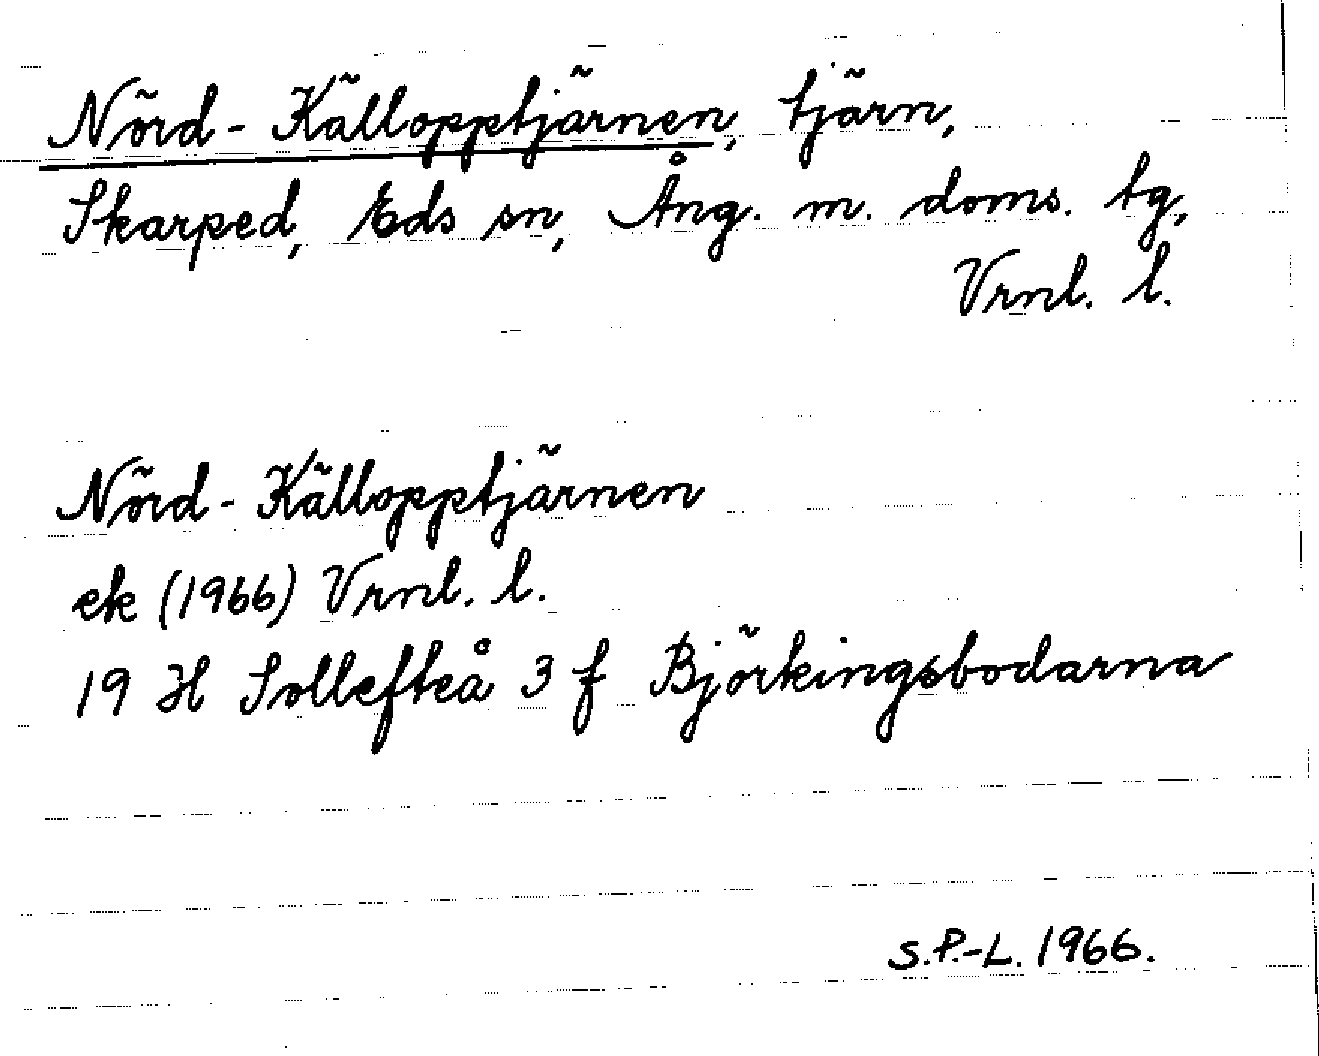 Nörd-Källopptjärnen, tjärn,
Skarped, Eds sn, Ång. m. doms. tg,
Vrnl. l.
Nörd-Källopptjärnen
ek (1966) Vrnl. l.
19 H Sollefteå 3 f Björkingsbodarna
S.P.-L. 1966.